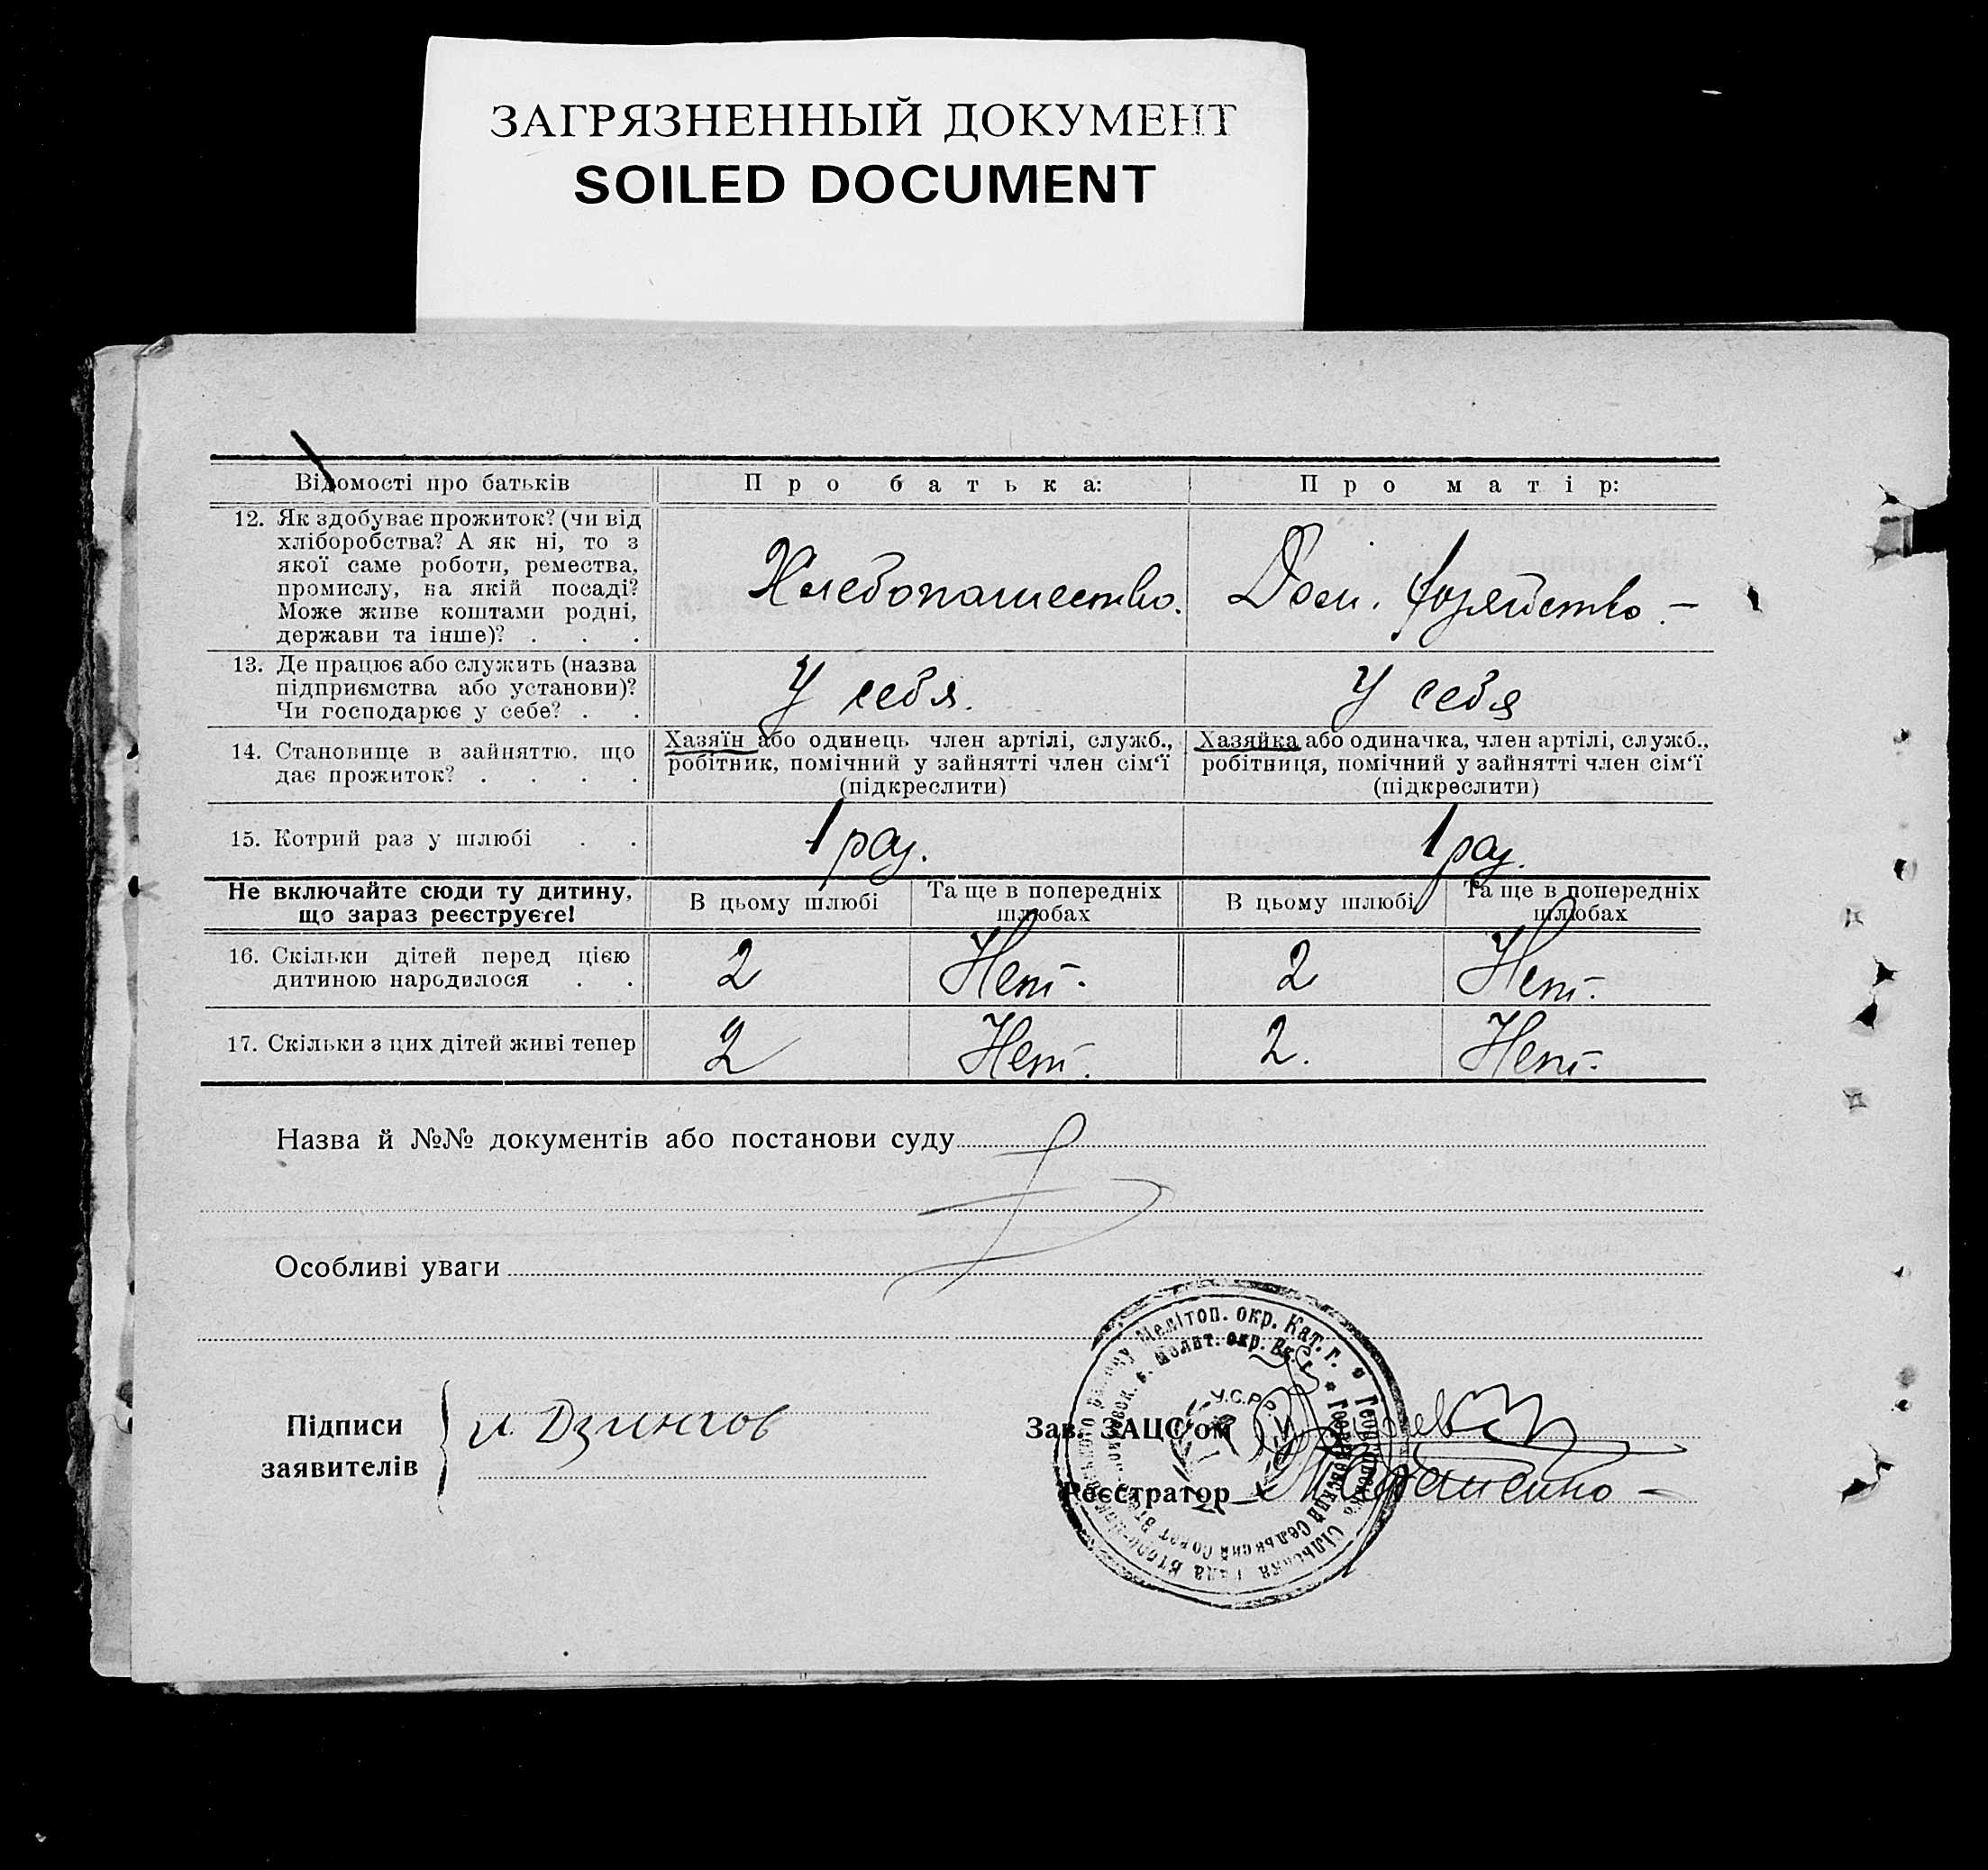 ЗАГРЯЗНЕННЫЙ ДОКУМЕНТ
SOILED DOCUMENT
Відомості про батьків
Про батька:
Про матір:
12. Як здобуває прожиток? (чи від
хліборобства? А як ні, то з
якої саме роботи, ремества,
промислу, на якій посаді?
Може живе коштами родні,
держави та інше)? . . .
Хлебопашество.
Дом. хозяйство. –
13. Де працює або служить (назва
підприємства або установи)?
Чи господарює у себе? . .
У себя.
У себя
14. Становище в зайняттю, що
дає прожиток? . . . .
Хазяїн або одинець член артілі, служб.,
робітник, помічний у зайнятті член сім‘ї
(підкреслити)
Хазяйка або одиначка, член артілі, служб.,
робітниця, помічний у зайнятті член сім‘ї
(підкреслити)
15. Котрий раз у шлюбі . .
1 раз.
1 раз.
Не включайте сюди ту дитину,
що зараз реєструєте!
В цьому шлюбі
Та ще в попередніх
шлюбах
В цьому шлюбі
Та ще в попередніх
шлюбах
16. Скільки дітей перед цією
дитиною народилося . .
2
Нет.
2
Нет.
17. Скільки з цих дітей живі тепер
2
Нет.
2.
Нет.
Назва й №№ документів або постанови суду
Особливі уваги
Підписи
заявителів
И. Дзингов
Зав. ЗАЦС‘ом
Реєстратор
Мелітоп. окр. Кат. г. * Георгіївська Сільська Рада
Мелит. окр. Ек. г. * Георгиевский Сельский Совет
У.С.Р.Р.